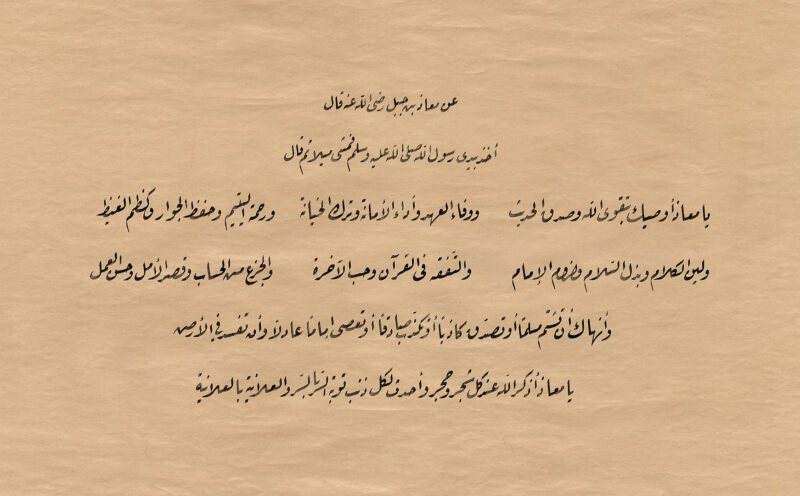 عن معاذ بن جبل رضى الله عنه قال
أخذ بيدى رسول الله صلى الله عليه وسلم فمشى ميلا ثم قال
يا معاذ أوصيك بتقوى الله وصدق الحديث ووفاء العهد وأداء الأمانة وترك الخيانة ورحمة اليتيم وحفظ الجوار وكظم الغيظ
ولين الكلام وبذل السلام ولزوم الإمام والتفقه فى القرآن وحب الآخرة والجزع من الحساب وقصر الأمل وحسن العمل
وأنهاك أن تشتم مسلما أو تصدق كاذبا أو تكذب صادقا أو تعصى إماما عادلا وأن تفسد في الأرض
يا معاذ أذكر الله عند كل شجر وحجر وأحدث لكل ذنب توبة السر بالسر والعلانية بالعلانية